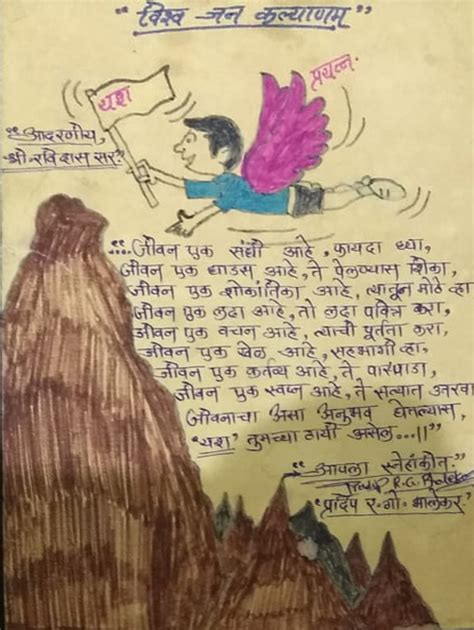 "विश्व जन कल्याणम्"
यश
प्रयत्न.
"आदरणीय,
श्री. रविदास सर."
"...जीवन एक संधी आहे, फायदा घ्या,
जीवन एक धाडस आहे, ते पेलण्यास शिका,
जीवन एक शोकांतिका आहे, त्यातून मोठे व्हा
जीवन एक लढा आहे, तो लढा पवित्र करा,
जीवन एक वचन आहे, त्याची पूर्तता करा,
जीवन एक खेळ आहे, सहभागी व्हा,
जीवन एक कर्तव्य आहे, ते पारपाडा,
जीवन एक स्वप्न आहे, ते सत्यात उतरवा
जीवनाचा असा अनुभव घेतल्यास,
"यश" तुमच्या ठायी असेल...||"
"आपला स्नेहांकीत."
R.G.
"प्रदिप र. गो. भालेकर."